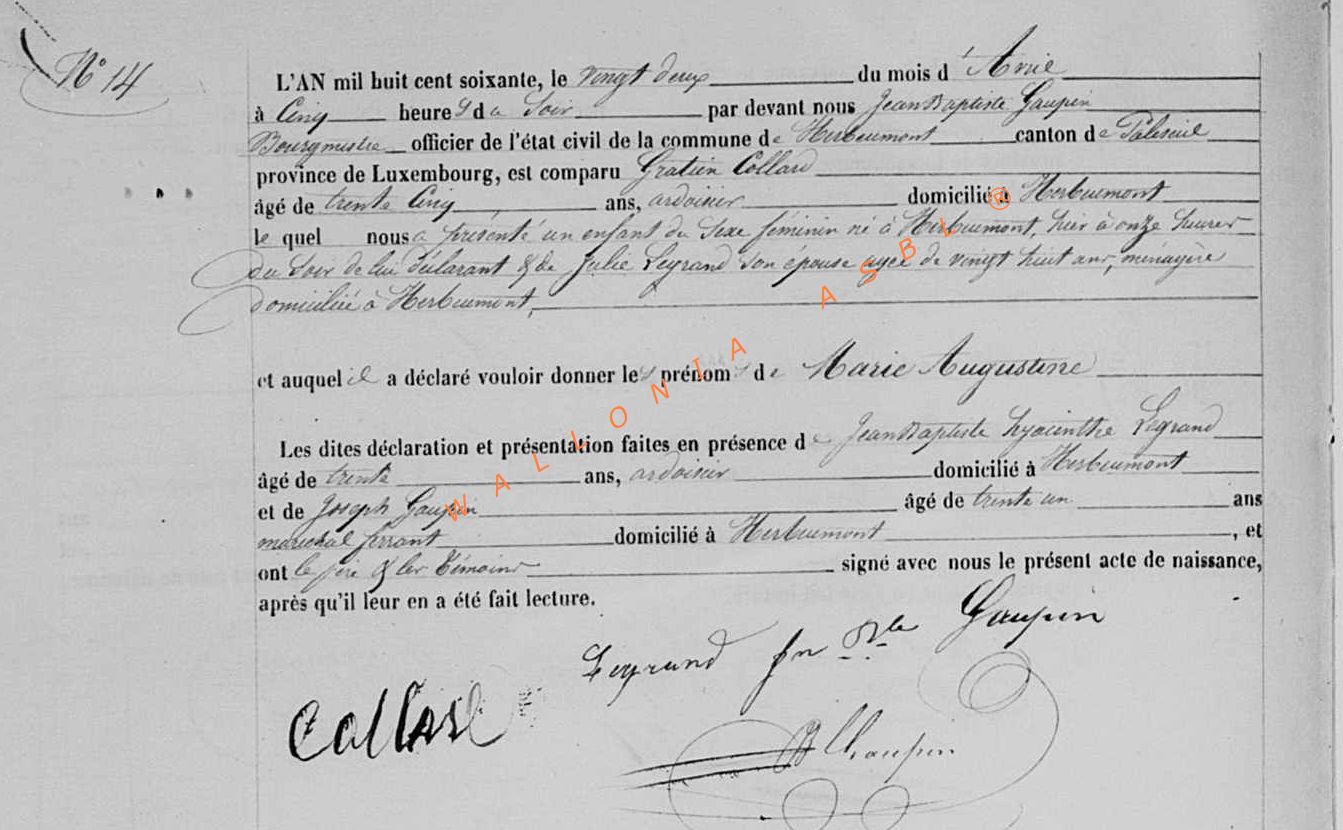 N° 14
L'AN mil huit cent soixante, le vingt deux du mois d'Avril
à Cinq heures du Soir par devant nous Jean Baptiste Gaupin
Bourgmestre officier de l'état civil de la commune de Herbeumont canton de Paliseul
province de Luxembourg, est comparu Gratien Collard
âgé de trente Cinq ans, ardoisier domicilié à Herbeumont
le quel nous a présenté un enfant du Sexe féminin né à Herbeumont, hier à onze heures
du Soir de lui déclarant & de Julie Legrand son épouse agée de vingt huit ans, ménagère
domiciliée à Herbeumont,
et auquel il a déclaré vouloir donner les prénoms de Marie Augustine
Les dites déclaration et présentation faites en présence de Jean Baptiste hyacinthe Legrand
âgé de trente ans, ardoisier domicilié à Herbeumont
et de Joseph Gaupin âgé de trente un ans
maréchal ferrant domicilié à Herbeumont, et
ont le père & les témoins signé avec nous le présent acte de naissance,
après qu'il leur en a été fait lecture.
Legrand jn Bte Gaupin
Collard
WALLONIA ASBL ®